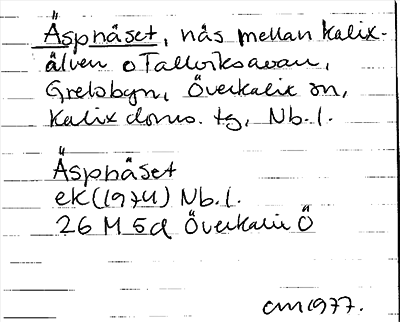 Äspnäset, näs mellan Kalix-
älven o Tallviksavan,
Grelsbyn, Överkalix sn,
Kalix doms. tg, Nb.l.
Äspnäset
ek (1974) Nb.l.
26 M 5d Överkalix Ö
cm 1977.